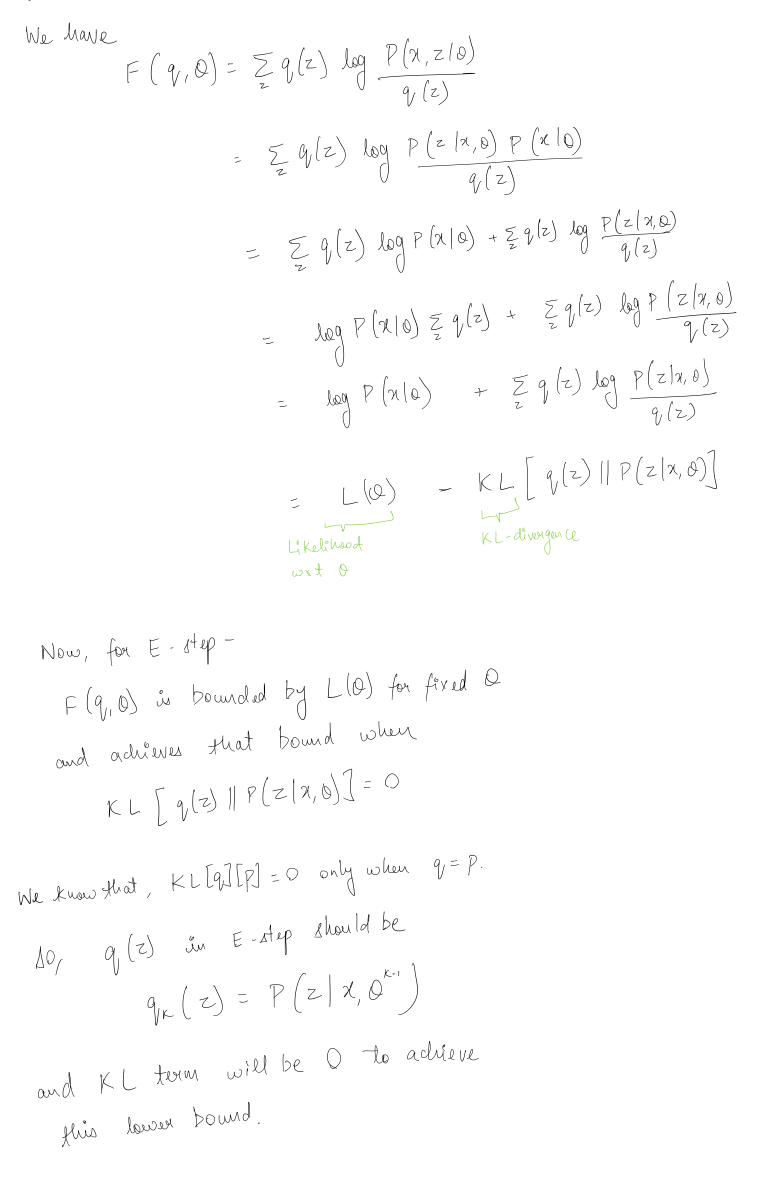 We have
F(q,θ) = Σ_z q(z) log P(x,z|θ)/q(z)
= Σ_z q(z) log P(z|x,θ) P(x|θ)/q(z)
= Σ_z q(z) log P(x|θ) + Σ_z q(z) log P(z|x,θ)/q(z)
= log P(x|θ) Σ_z q(z) + Σ_z q(z) log P(z|x,θ)/q(z)
= log P(x|θ) + Σ_z q(z) log P(z|x,θ)/q(z)
= L(θ) - KL[q(z) || P(z|x,θ)]
Likelihood KL-divergence
wrt θ
Now, for E-step -
F(q,θ) is bounded by L(θ) for fixed θ
and achieves that bound when
KL[q(z) || P(z|x,θ)] = 0
We know that, KL[q][p] = 0 only when q = p.
so, q(z) in E-step should be
q_K(z) = P(z|x,θ^{K-1})
and KL term will be 0 to achieve
this lower bound.